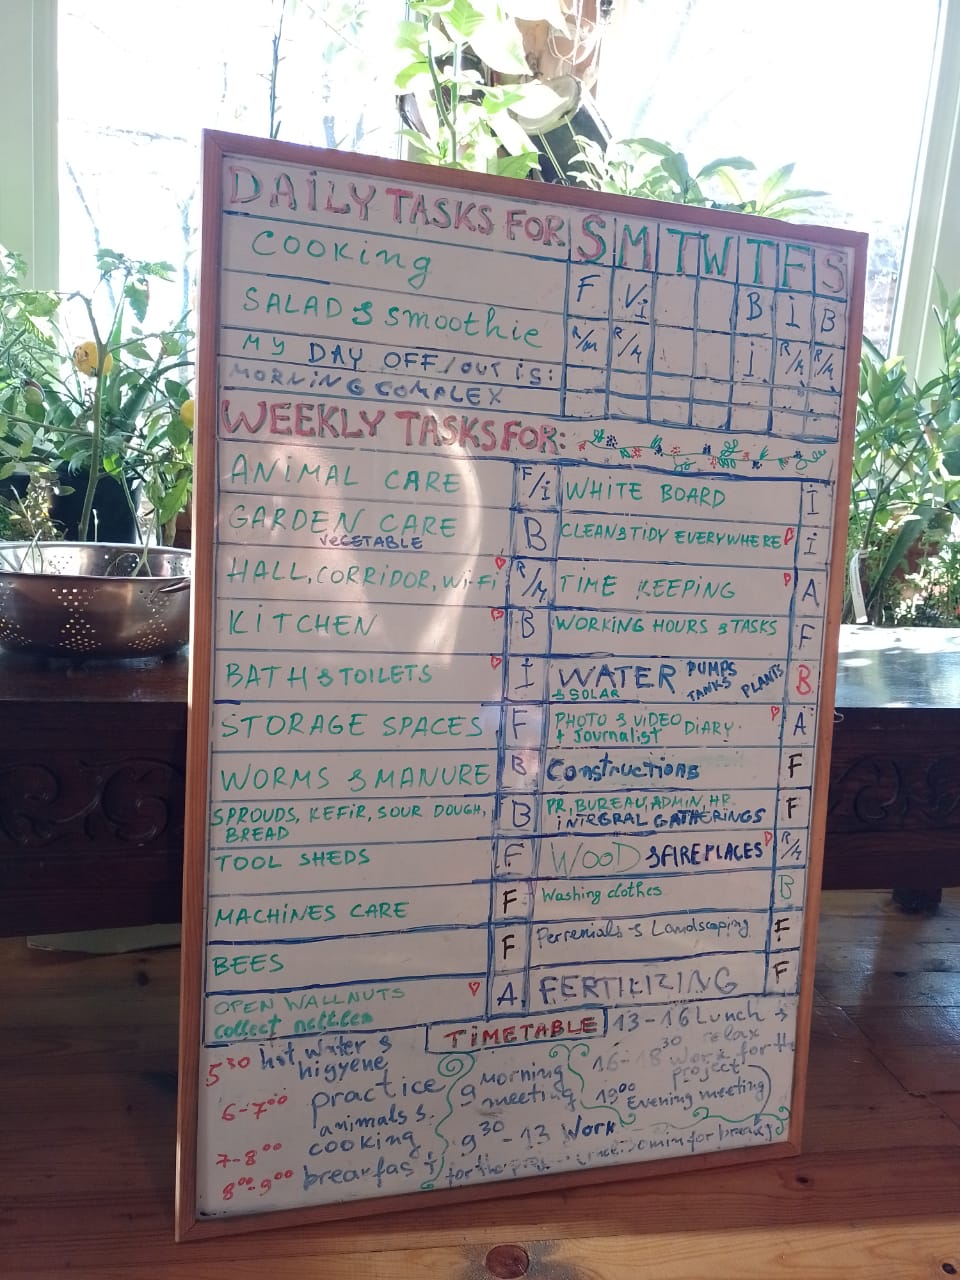 DAILY TASKS FOR S M T W T F S
COOKING F Vi B I B
SALAD & Smoothie R/M R/M I R/M R/M
MY DAY OFF/OUT IS:
MORNING COMPLEX
WEEKLY TASKS FOR:
ANIMAL CARE F/i WHITE BOARD I
GARDEN CARE B CLEAN & TIDY EVERYWHERE I
VEGETABLE
HALL, CORRIDOR, Wi-Fi R/M TIME KEEPING A
KITCHEN B WORKING HOURS & TASKS F
BATH & TOILETS I WATER PUMPS TANKS PLANTS B
& SOLAR
STORAGE SPACES F PHOTO & VIDEO DIARY A
+ Journalist
WORMS & MANURE B Constructions F
SPROUDS, KEFIR, SOUR DOUGH, B PR, BUREAU, ADMIN, HR F
BREAD INTEGRAL GATHERINGS
TOOL SHEDS F WOOD & FIREPLACES R/M
MACHINES CARE F Washing clothes B
BEES F Perrenials & Landscaping F
OPEN WALLNUTS A FERTILIZING F
collect nettles
TIMETABLE
5 30 hot water &
higyene
6-7 00 practice
animals &
7-8 00 cooking
8 00-9 00 breakfast
9 morning
meeting
9 30 - 13 Work
for the
13-16 Lunch +
relax
16-18 30 Work for the
project
19 00 Evening meeting